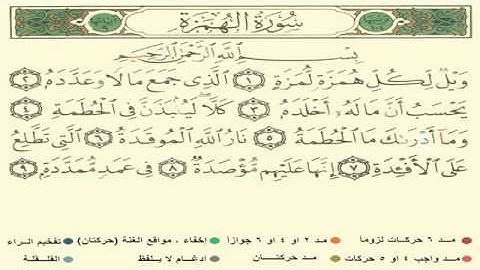 سُورَةُ الهُمَزَةِ
بِسْمِ اللَّهِ الرَّحْمَٰنِ الرَّحِيمِ
وَيْلٌ لِّكُلِّ هُمَزَةٍ لُّمَزَةٍ ١ الَّذِى جَمَعَ مَالًا وَعَدَّدَهُۥ ٢
يَحْسَبُ أَنَّ مَالَهُۥٓ أَخْلَدَهُۥ ٣ كَلَّا ۖ لَيُنۢبَذَنَّ فِى الْحُطَمَةِ ٤
وَمَآ أَدْرَىٰكَ مَا الْحُطَمَةُ ٥ نَارُ اللَّهِ الْمُوقَدَةُ ٦ الَّتِى تَطَّلِعُ
عَلَى الْأَفْـِٔدَةِ ٧ إِنَّهَا عَلَيْهِم مُّؤْصَدَةٌ ٨ فِى عَمَدٍ مُّمَدَّدَةٍۭ ٩
مد ٦ حركات لزوما مد ٢ او ٤ او ٦ جوازاً إخفاء ، مواقع الغنة (حركتان) تفخيم الراء
مد واجب ٤ او ٥ حركات مد حركتان ادغام لا يلفظ القلقلة